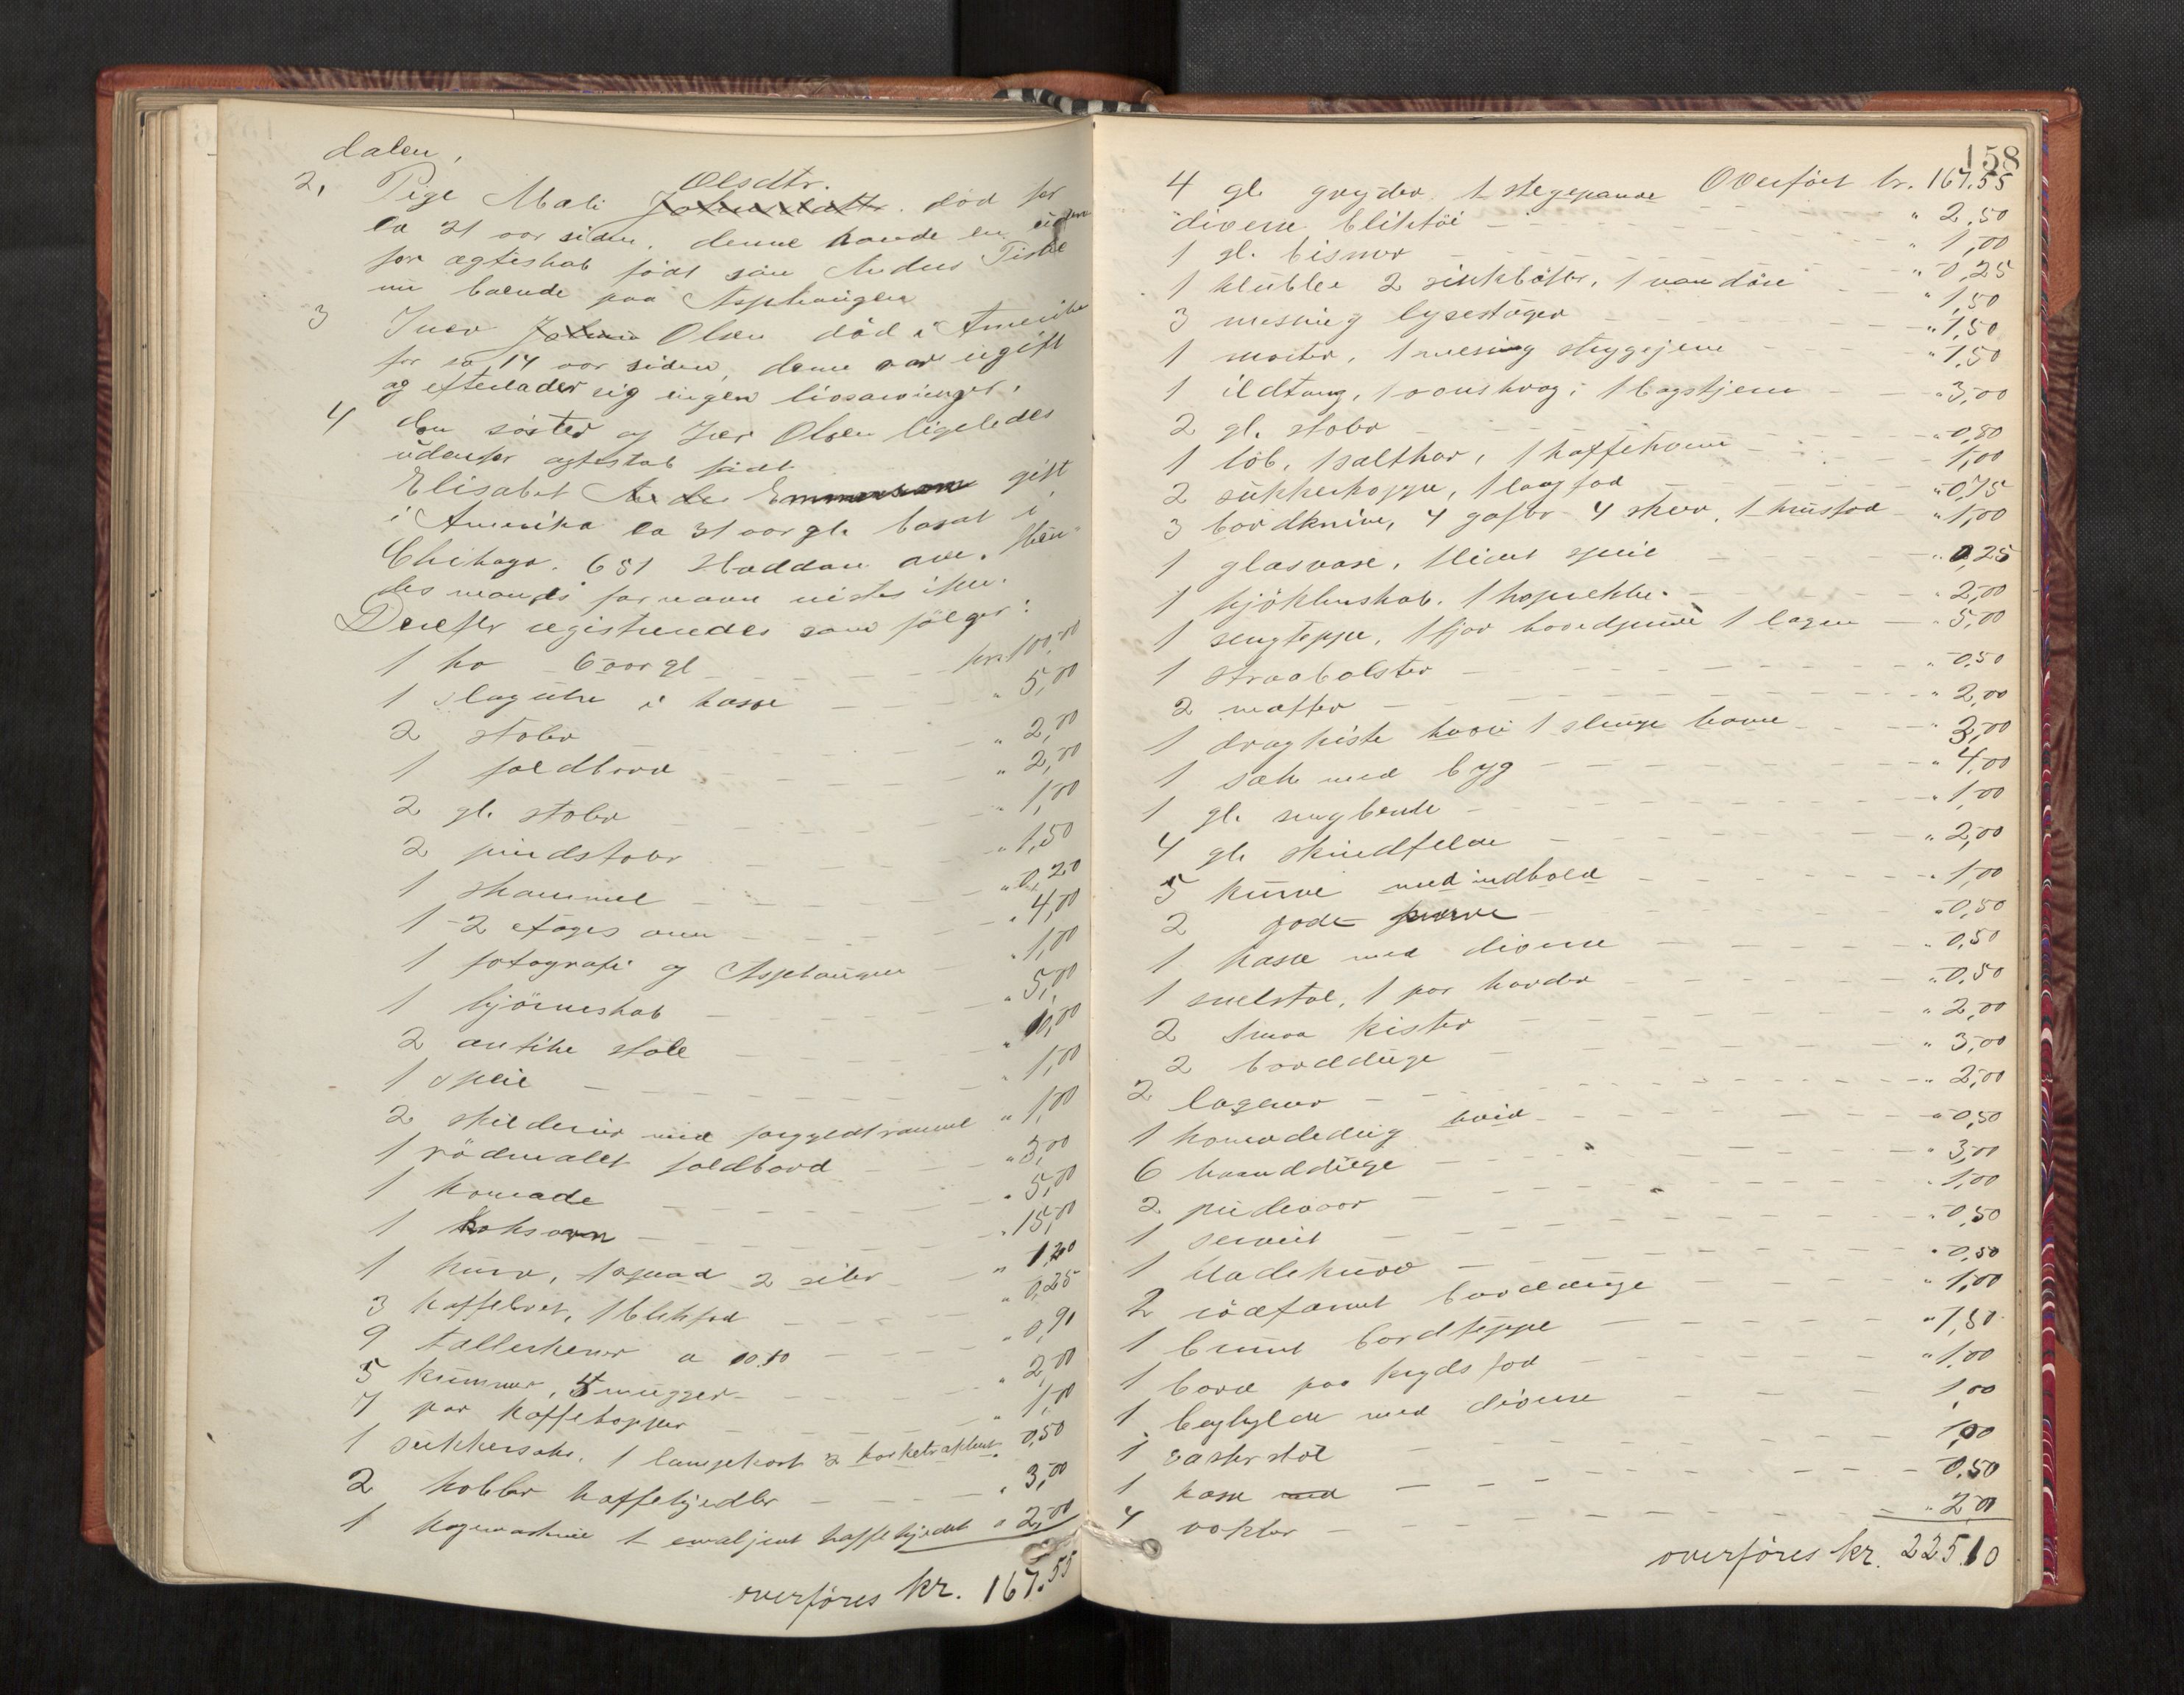 dalen,
Olsdtr.
2, Pige Mali Johnsdattr. död for
ca 21 aar siden. denne havde en uden
for ægteskab födt sön Anders
nu boende paa Asphaugen
3 Iver Johns Olsen död i Amerika
for ca 14 aar siden, denne var ugift
og efterlader sig ingen livsarvinger.
4 den söster og Iver Olsen ligeledes
udenfor ægteskab födt
Elisabet gift
i Amerika ca 31 aar gl. bosat i
Chikago. 651 Haddan ave. Hen-
des mands fornavn vistes ikke.
Derefter registreredes som fölger:
1 ko 6 aar gl kr. 100,00
1 slaguhr i kasse " 5,00
2 stoler " 2,00
1 foldbord " 2,00
2 gl. stoler " 1,00
2 pindstoler " 1,50
1 skammel " 0,20
1 2 etages ovn " 4,00
1 fotografi af Asphaugen " 1,00
1 hjörneskab " 5,00
2 antike stole " 10,00
1 speil " 1,00
2 skilderier med forgyldt ramme " 1,00
1 rödmalet foldbord " 3,00
1 komade " 5,00
1 koksovn " 15,00
1 kurv, 1 spand 2 siler " 1,20
3 kaffebret, 1 blikfad " 0,25
9 tallerkener a 00.10 " 0,90
5 kummer, 5 mugger " 2,00
7 par kaffekopper " 1,00
1 sukkersaks, 1 lampekost 2 korketrækker " 0,50
2 kobber kaffekjedler " 3,00
1 kogemaskine 1 emaljeret kaffekjedel " 2,00
overföres kr. 167.55
158
Overfört kr. 167.55
4 gl. gryder, 1 stegepande " 2,50
diverse bliktöi " 1,00
1 gl. bismer " 0,25
1 klubbe 2 sinkbötter, 1 vandöse " 1,50
3 messing lysestager " 1,50
1 morter, 1 messing strygejern " 1,50
1 ildtang, 1 ovnskrag, 1 bagstjern " 3,00
2 gl. stoler " 0,80
1 löb, 1 saltkar, 1 kaffekanne 1,00
2 sukkerkopper, 1 lang fad " 0,75
3 bordknive, 4 gafler 4 skeer, 1 krusfad " 1,00
1 glasvase, 1 lidet speil " 0,25
1 kjökkenskab, 1 " 2,00
1 sengteppe, 1 fjær hovedpude 1 lagen " 5,00
1 straabolster " 0,50
2 matter " 2,00
1 dragkiste hvori 1 slenge 3,00
1 sæk med byg " 4,00
1 gl. sengbenk " 1,00
4 gl. skindfelde " 2,00
5 kurve med indhold " 1,00
2 gode kurve " 0,50
1 kasse med diverse " 0,50
1 snelstol, 1 par karder " 0,50
2 smaa kister " 2,00
2 bordduge " 3,00
2 lagener " 2,00
1 komadedug hvid " 0,50
6 haandduge " 3,00
2 pudevaar " 1,00
1 serviet " 0,50
1 kladekurv " 0,50
2 rödfarvet bordduge " 1,00
1 brunt bordteppe " 1,50
1 bord paa krydsfod " 1,00
1 boghylde med diverse 1,00
1 1,00
1 kasse med 0,50
4 vokler " 2,00
overföres kr. 225.10